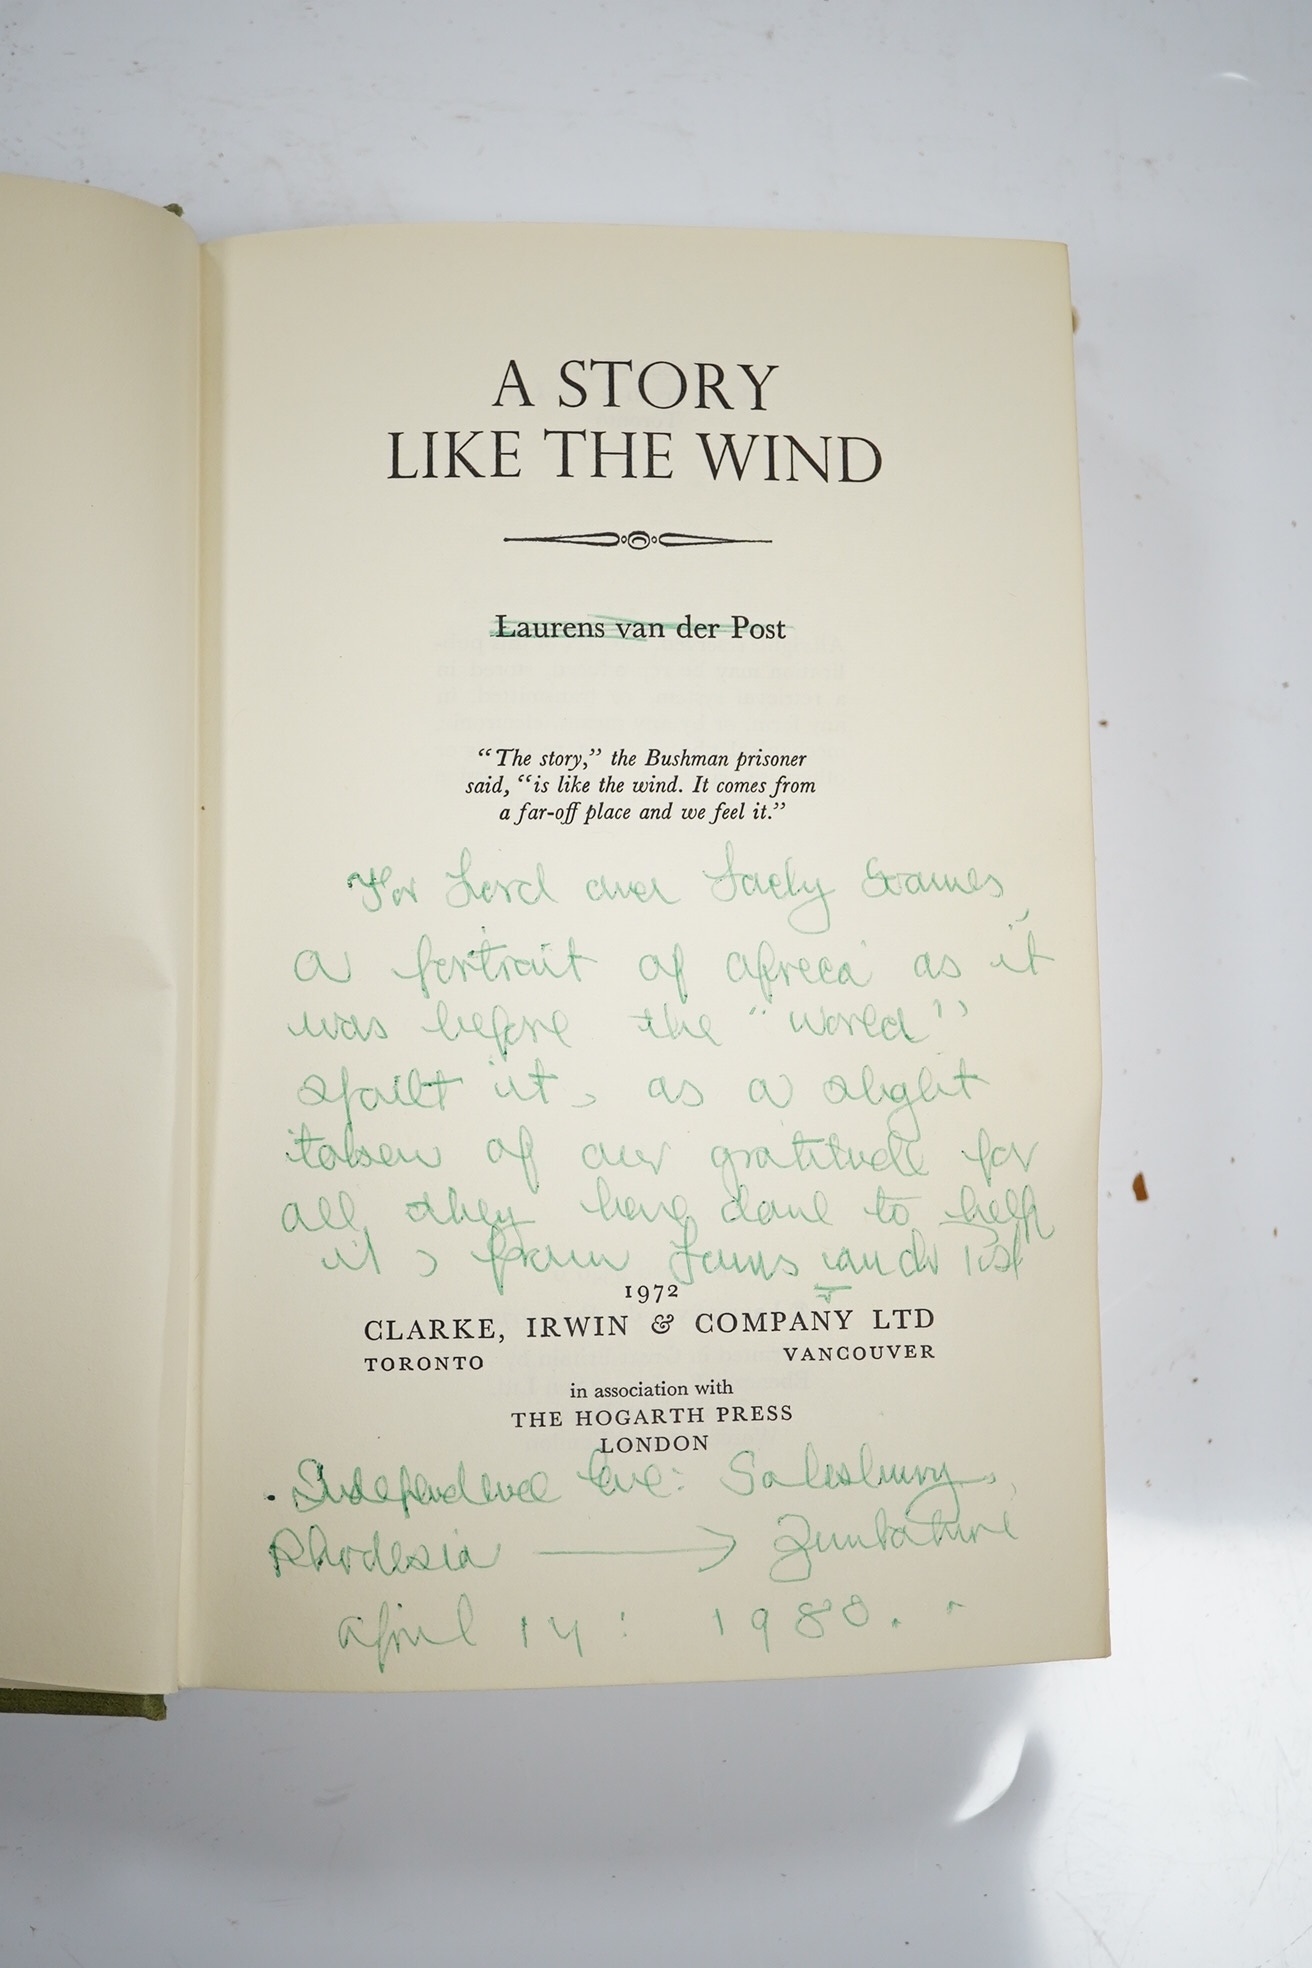 A STORY
LIKE THE WIND
Laurens van der Post
“The story,” the Bushman prisoner
said, “is like the wind. It comes from
a far-off place and we feel it.”
For Lord and Lady Soames,
a portrait of Africa as it
was before the “world”
spoilt it, as a slight
token of our gratitude for
all they have done to help
it, from Laurens van der Post
1972
CLARKE, IRWIN & COMPANY LTD
TORONTO VANCOUVER
in association with
THE HOGARTH PRESS
LONDON
Independence Eve: Salisbury,
Rhodesia → Zimbabwe
April 14: 1980.